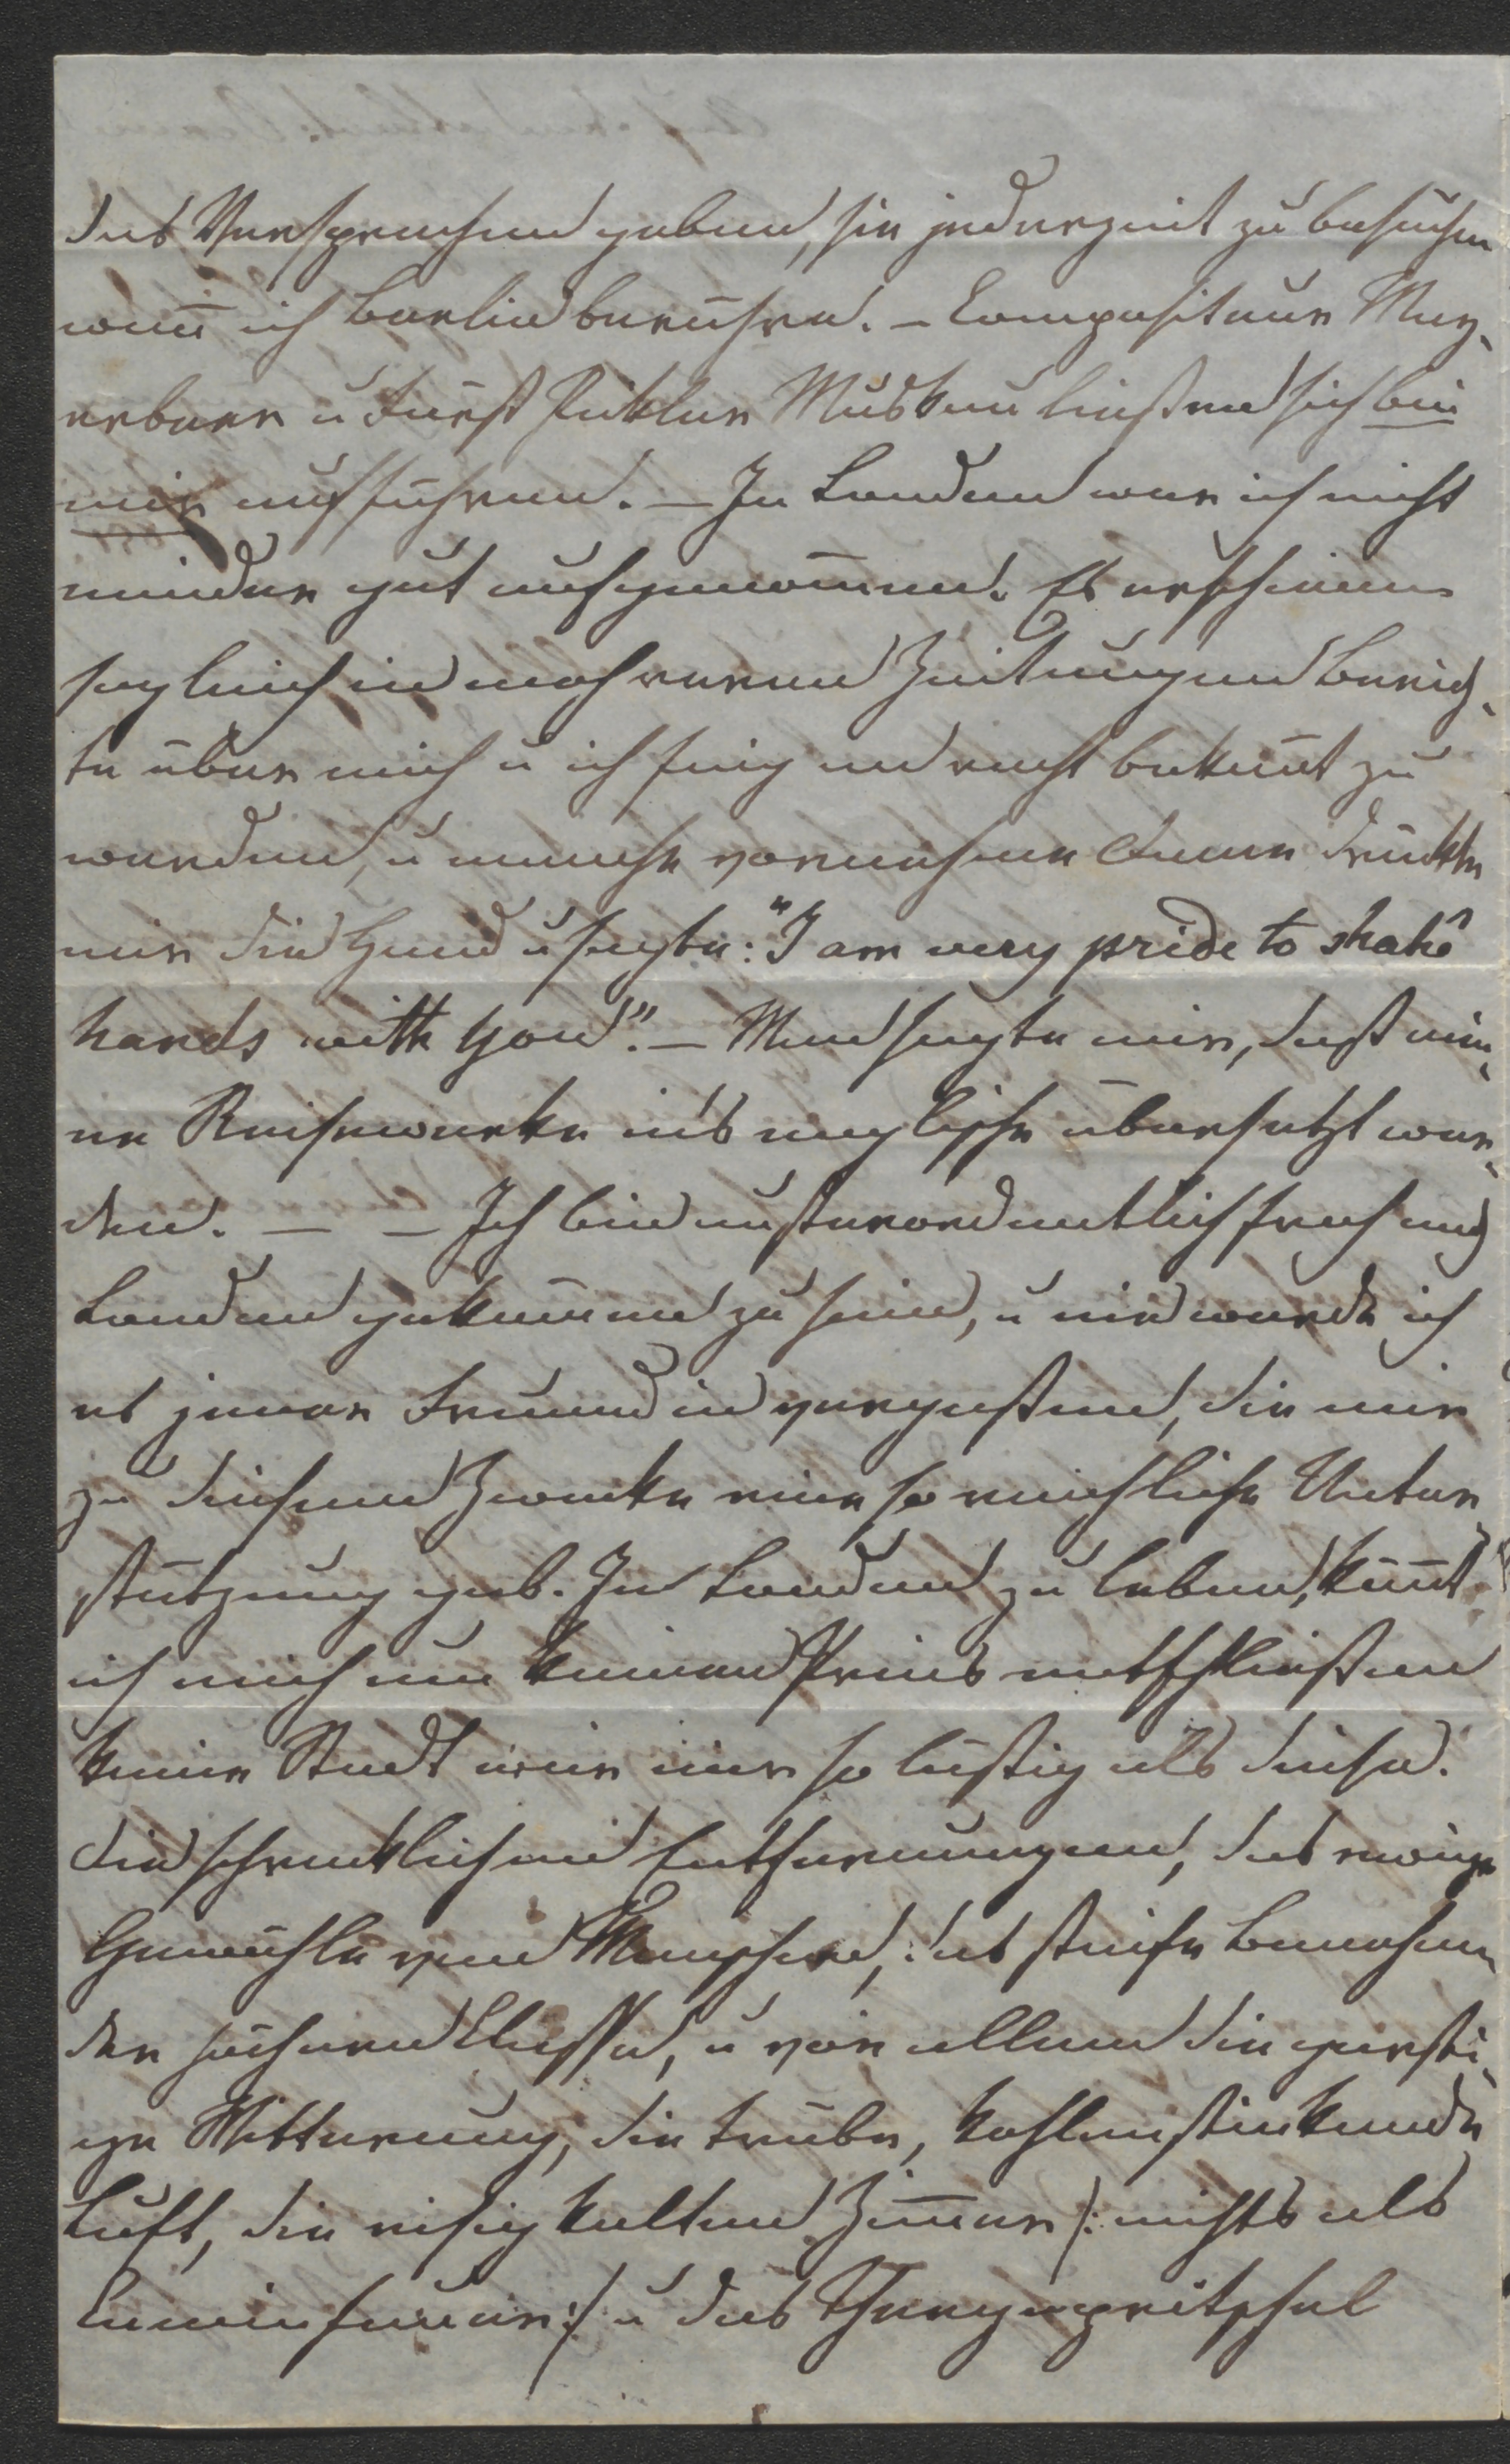 das Versprechen geben, sie jederzeit zu besuchen
wen̄ ich Berlin berühre. – Compositeur Mey-
erbeer u Fürst Pükler Muskau ließen sich bei
mir aufführen. – In London war ich nicht
minder gut aufgenom̄en. Es erschienen
sogleich in mehreren Zeitungen Berich-
te über mich u ich fing an recht bekan̄t zu
werden, u manche vornehme Dame drückte
mir die Hand u sagte: "I am very pride to shake
hands with you". – Man sagte mir, daß mei-
ne Reisewerke in's englische übersetzt wer-
den. – – Ich bin außerordentlich froh nach
London gekom̄en zu sein, u nie werde ich
es jener Freundin vergessen, die mir
zu diesem Zwecke eine so reichliche Unter
stützung gab. In London zu leben, kön̄t
ich mich um keinen Preis entschließen
keine Stadt wär mir so lästig als diese.
Die schrecklichen Entfernungen, das ewige
Gewühle von Menschen, das steife Benehmen
der höheren Classe, u vor allem die garsti-
ge Witterung, die trübe, kohlenstinkende
Luft, die eisig kalten Zim̄er /: nichts als
Caminfeuer :/ u das